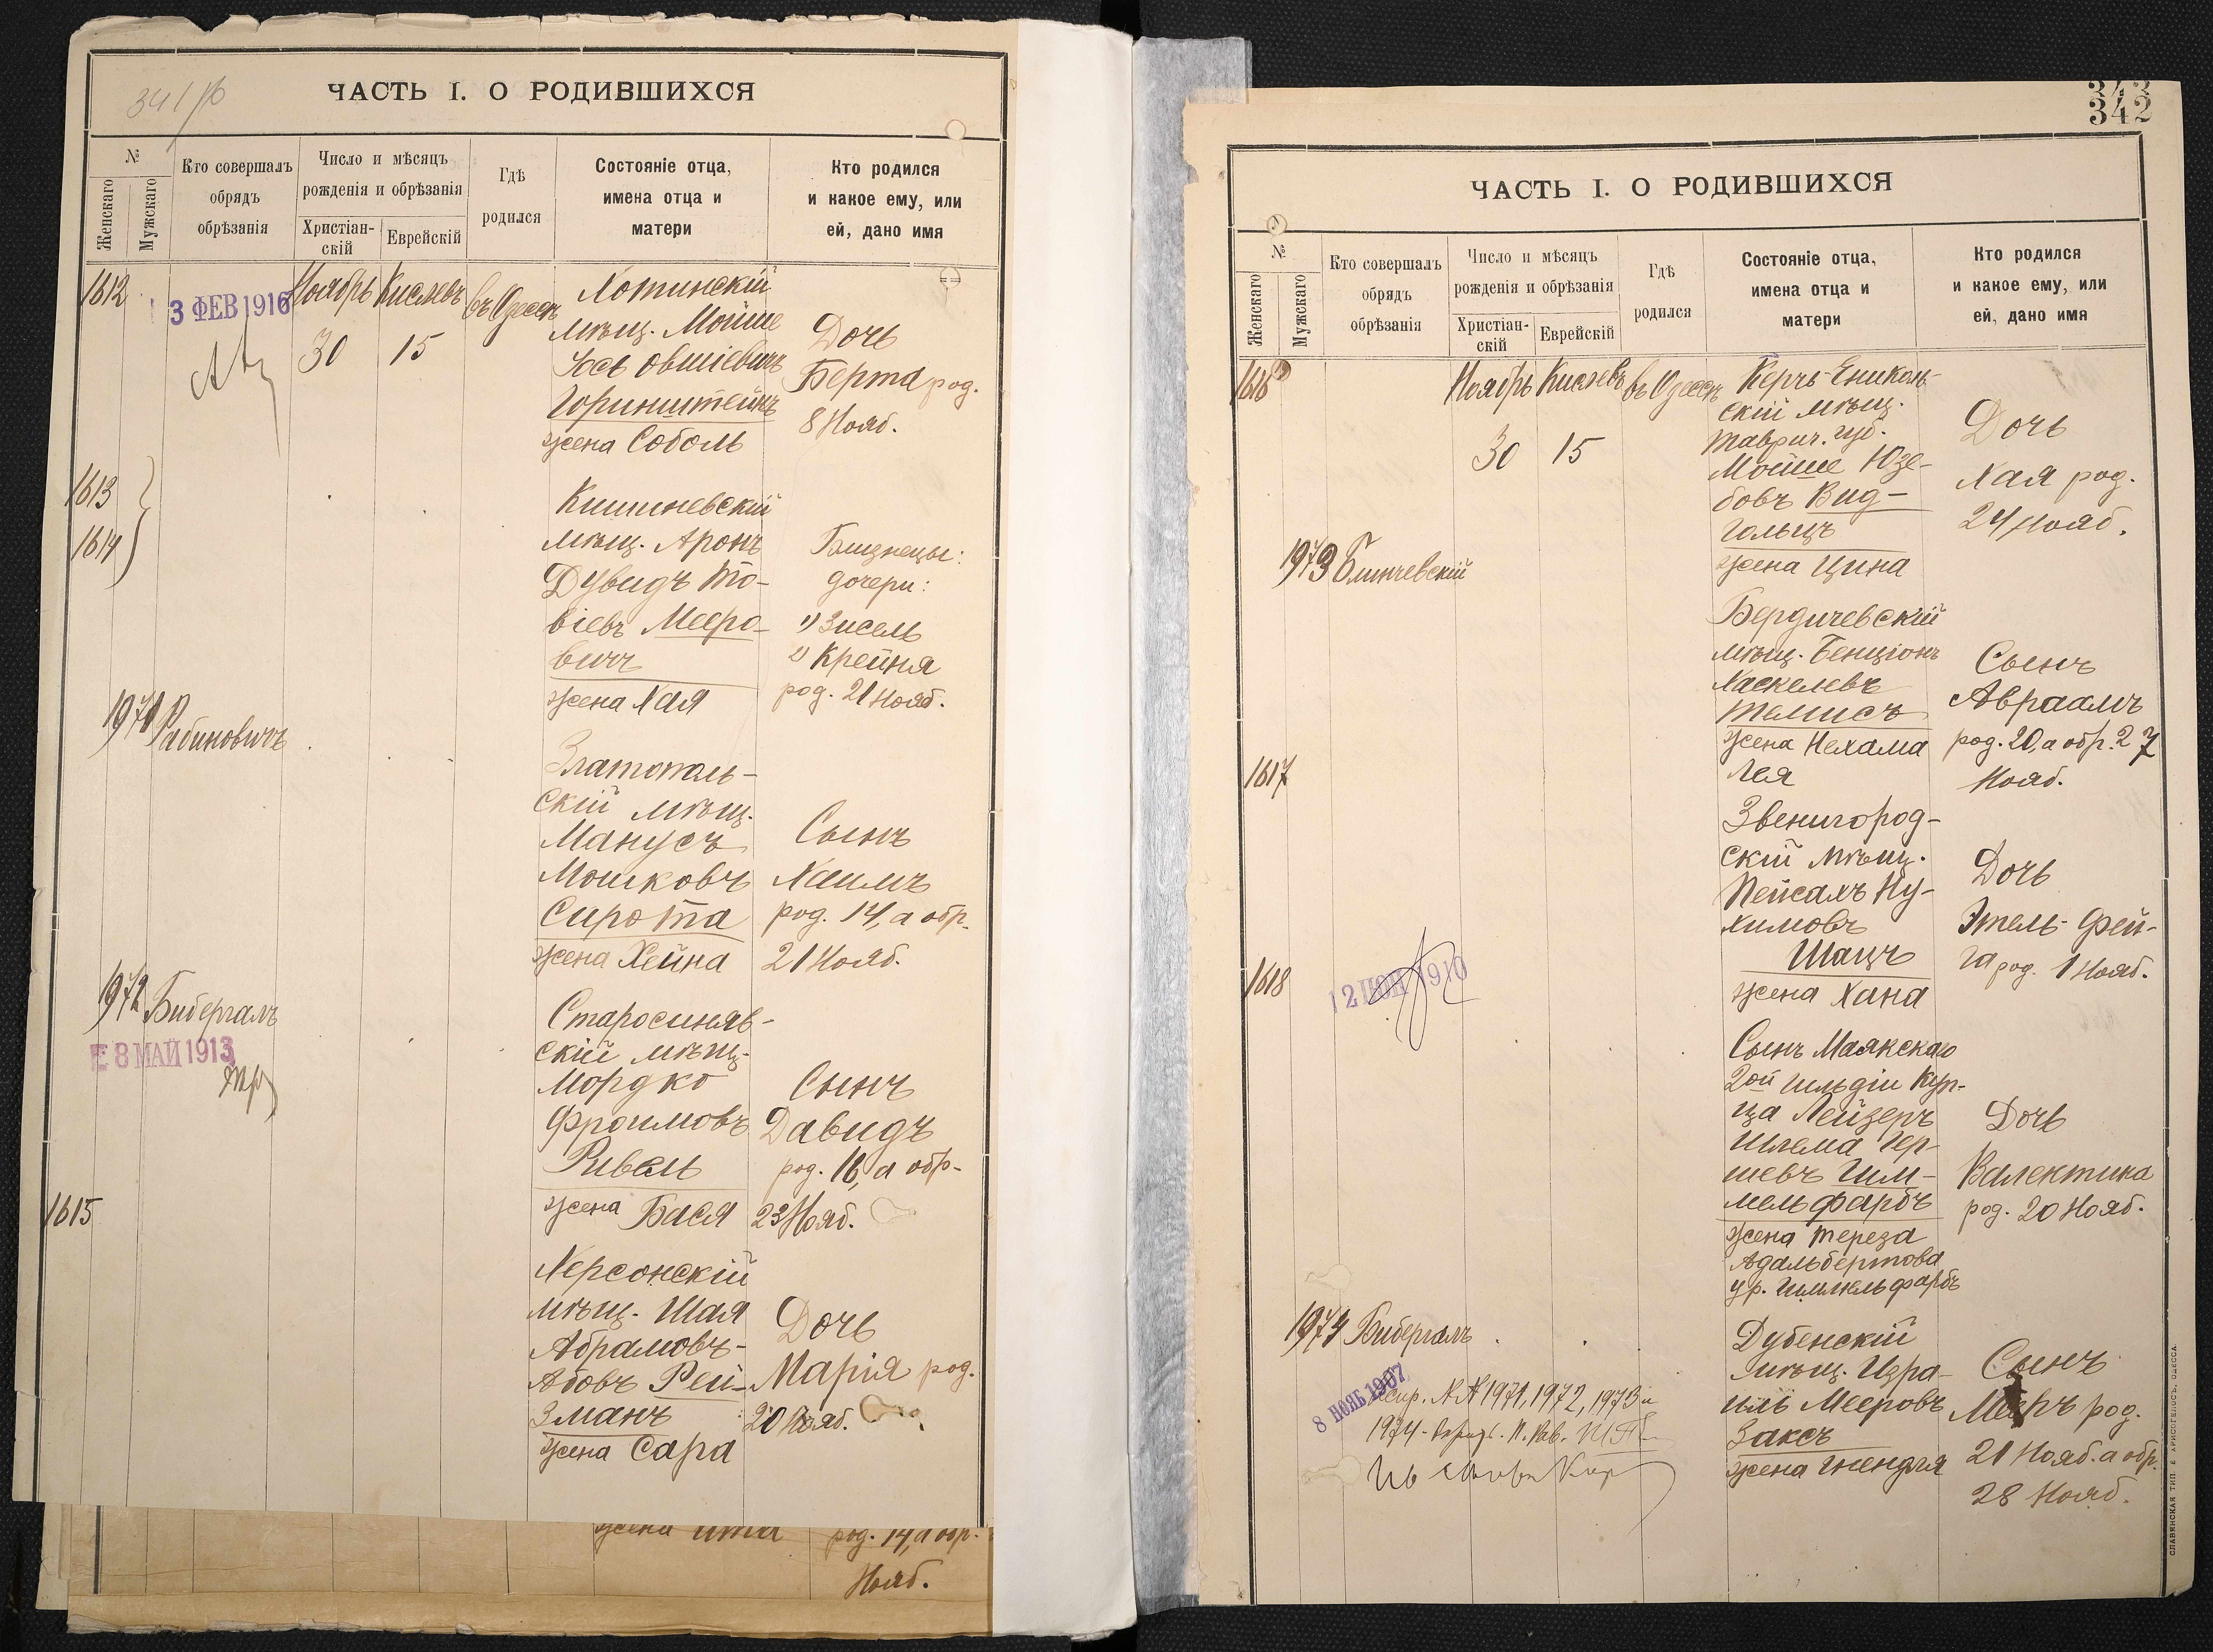 341/б
ЧАСТЬ I. О РОДИВШИХСЯ
№
Женскаго
Мужскаго
Кто совершалъ
обрядъ
обрѣзанія
Число и мѣсяцъ
рожденія и обрѣзанія
Христіан-
скій
Еврейскій
Гдѣ
родился
Состояніе отца,
имена отца и
матери
Кто родился
и какое ему, или
ей, дано имя
1612
3 ФЕВ 1916
Ноябрь Кислевъ въ Одессѣ
30 15
Хотинскій
мѣщ. Мойше
Іось Овшіевичъ
Горинштейнъ
жена Соболь
Дочь
Берта род.
8 Нояб.
1613
1614
Кишиневскій
мѣщ. Аронъ
Дувидъ То-
віевъ Мееро-
вичъ
жена Хая
Близнецы:
дочери:
1) Зисель
2) Крейня
род. 21 Нояб.
1971 Рабиновичъ
Златополь-
скій мѣщ.
Манусъ
Мошковъ
Сирота
жена Хейна
Сынъ
Хаимъ
род. 14, а обр.
21 Нояб.
1972 Бибергалъ
8 МАЙ 1913
Старосиняв-
скій мѣщ.
Мордко
Фроимовъ
Ривель
жена Бася
Сынъ
Давидъ
род. 16, а обр.
23 Нояб.
1615
Херсонскій
мѣщ. Шая
Абрамовъ-
Абовъ Рей-
зманъ
жена Сара
Дочь
Марія род.
20 Нояб.
жена Ита
род. 14, а обр.
Нояб.
343
342
ЧАСТЬ I. О РОДИВШИХСЯ
№
Женскаго
Мужскаго
Кто совершалъ
обрядъ
обрѣзанія
Число и мѣсяцъ
рожденія и обрѣзанія
Христіан-
скій
Еврейскій
Гдѣ
родился
Состояніе отца,
имена отца и
матери
Кто родился
и какое ему, или
ей, дано имя
1616
Ноябрь Кислевъ въ Одессѣ
30 15
Керчь-Ениколь-
скій мѣщ.
Таврич. губ.
Мойше Юзе-
бовъ Вид-
гольцъ
жена Цина
Дочь
Хая род.
24 Нояб.
1973 Блинчевскій
Бердичевскій
мѣщ. Бенціонъ
Хаскелевъ
Темисъ
жена Нехама
Лея
Сынъ
Авраамъ
род. 20, а обр. 27
Нояб.
1617
Звенигород-
скій мѣщ.
Пейсахъ Ну-
химовъ
Шацъ
жена Хана
Дочь
Этель-Фей-
га род. 1 Нояб.
1618
12 ІЮН 1910
Сынъ Маякскаго
2ой гильдіи Куп-
ца Лейзеръ
Шлема Гер-
шевъ Гим-
мельфарбъ
жена Тереза
Адальбертова
ур. Гиммельфарбъ
Дочь
Валентина
род. 20 Нояб.
1974 Бибергалъ
8 НОЯБ 1907
Дубенскій
мѣщ. Изра-
иль Мееровъ
Заксъ
жена Гнендля
Сынъ
Мееръ род.
21 Нояб. а обр.
28 Нояб.
№№ 1971, 1972, 1973 и
1974
СЛАВЯНСКАЯ ТИП. Е. ХРИСОГЕЛОСЪ, ОДЕССА.